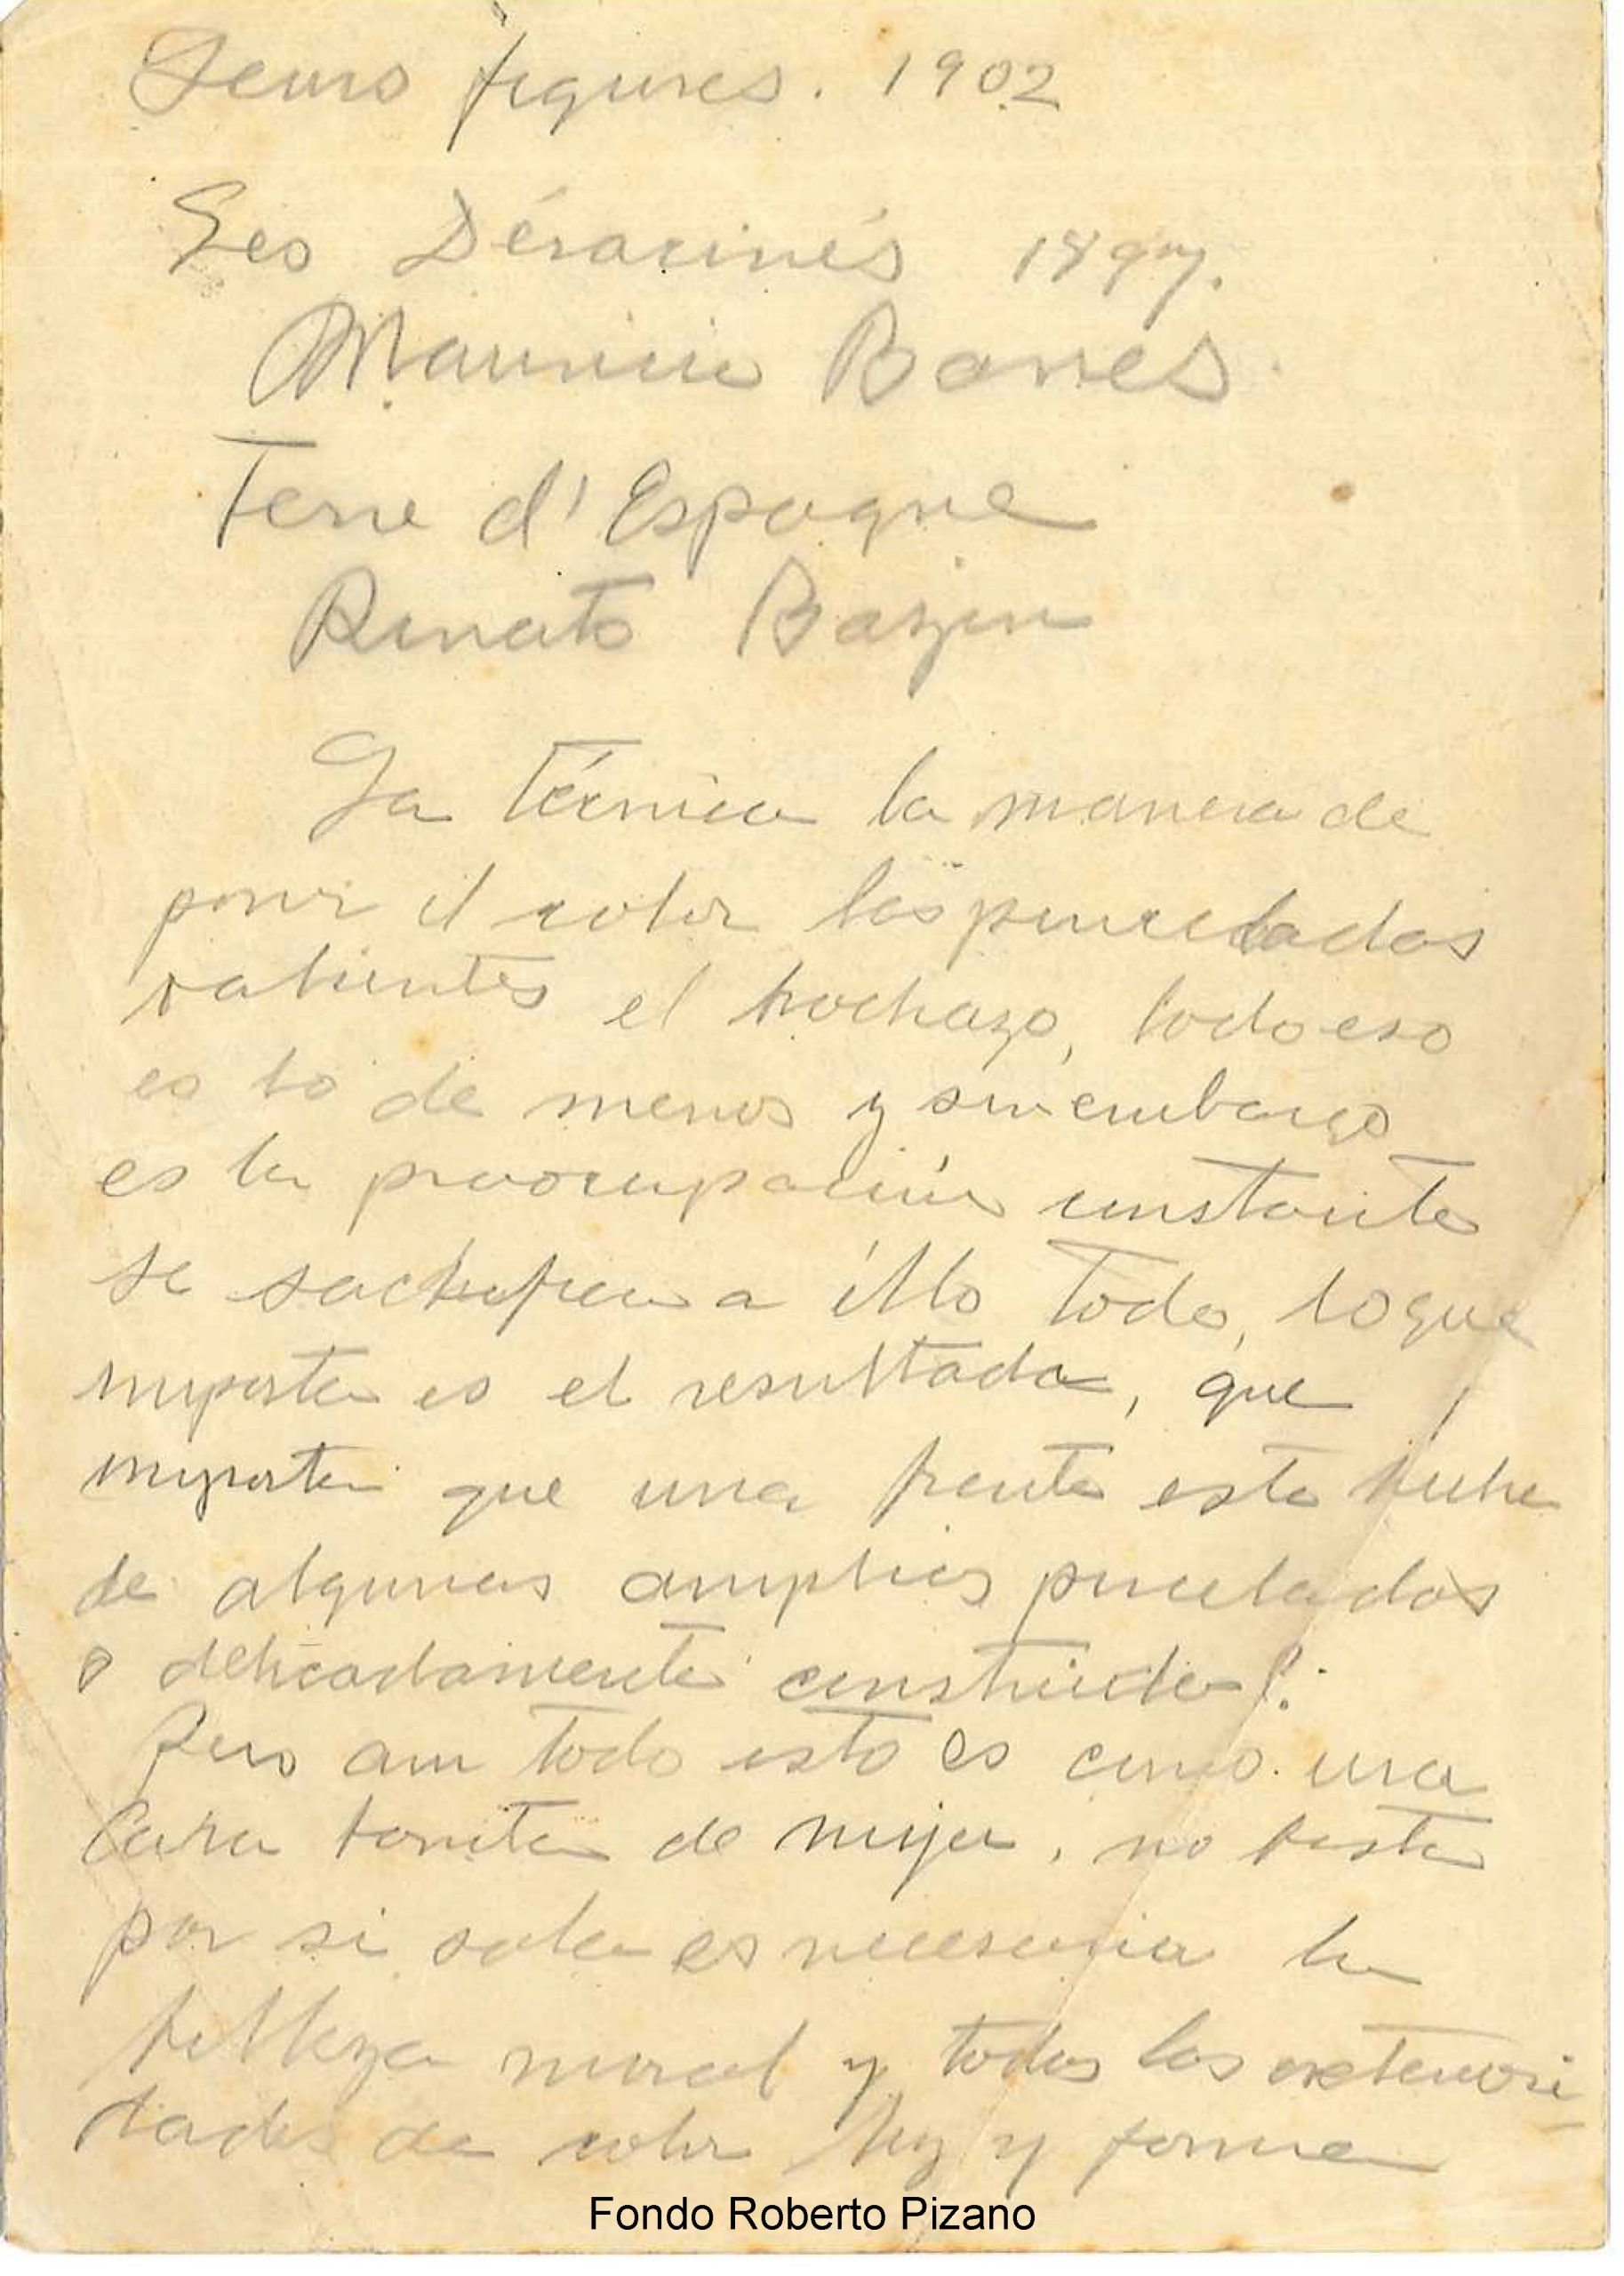 Leurs figures. 1902
Les Déracinés 1897.
Mauricio Barres.
Terre d'Espagne
Renato Bazin
La técnica la manera de
poner el color las pinceladas
valientes el brochazo, todo eso
es lo de menos y sin embargo
es la preocupación constante
se sacrifica a ello todo, lo que
importa es el resultado, que
importa que una frente este hecha
de algunas amplias pinceladas
o delicadamente construida?.
Pero aun todo esto es como una
Cara bonita de mujer, no basta
por si sola es necesaria la
belleza moral y todas las exteriori-
dades de color luz y forma
Fondo Roberto Pizano